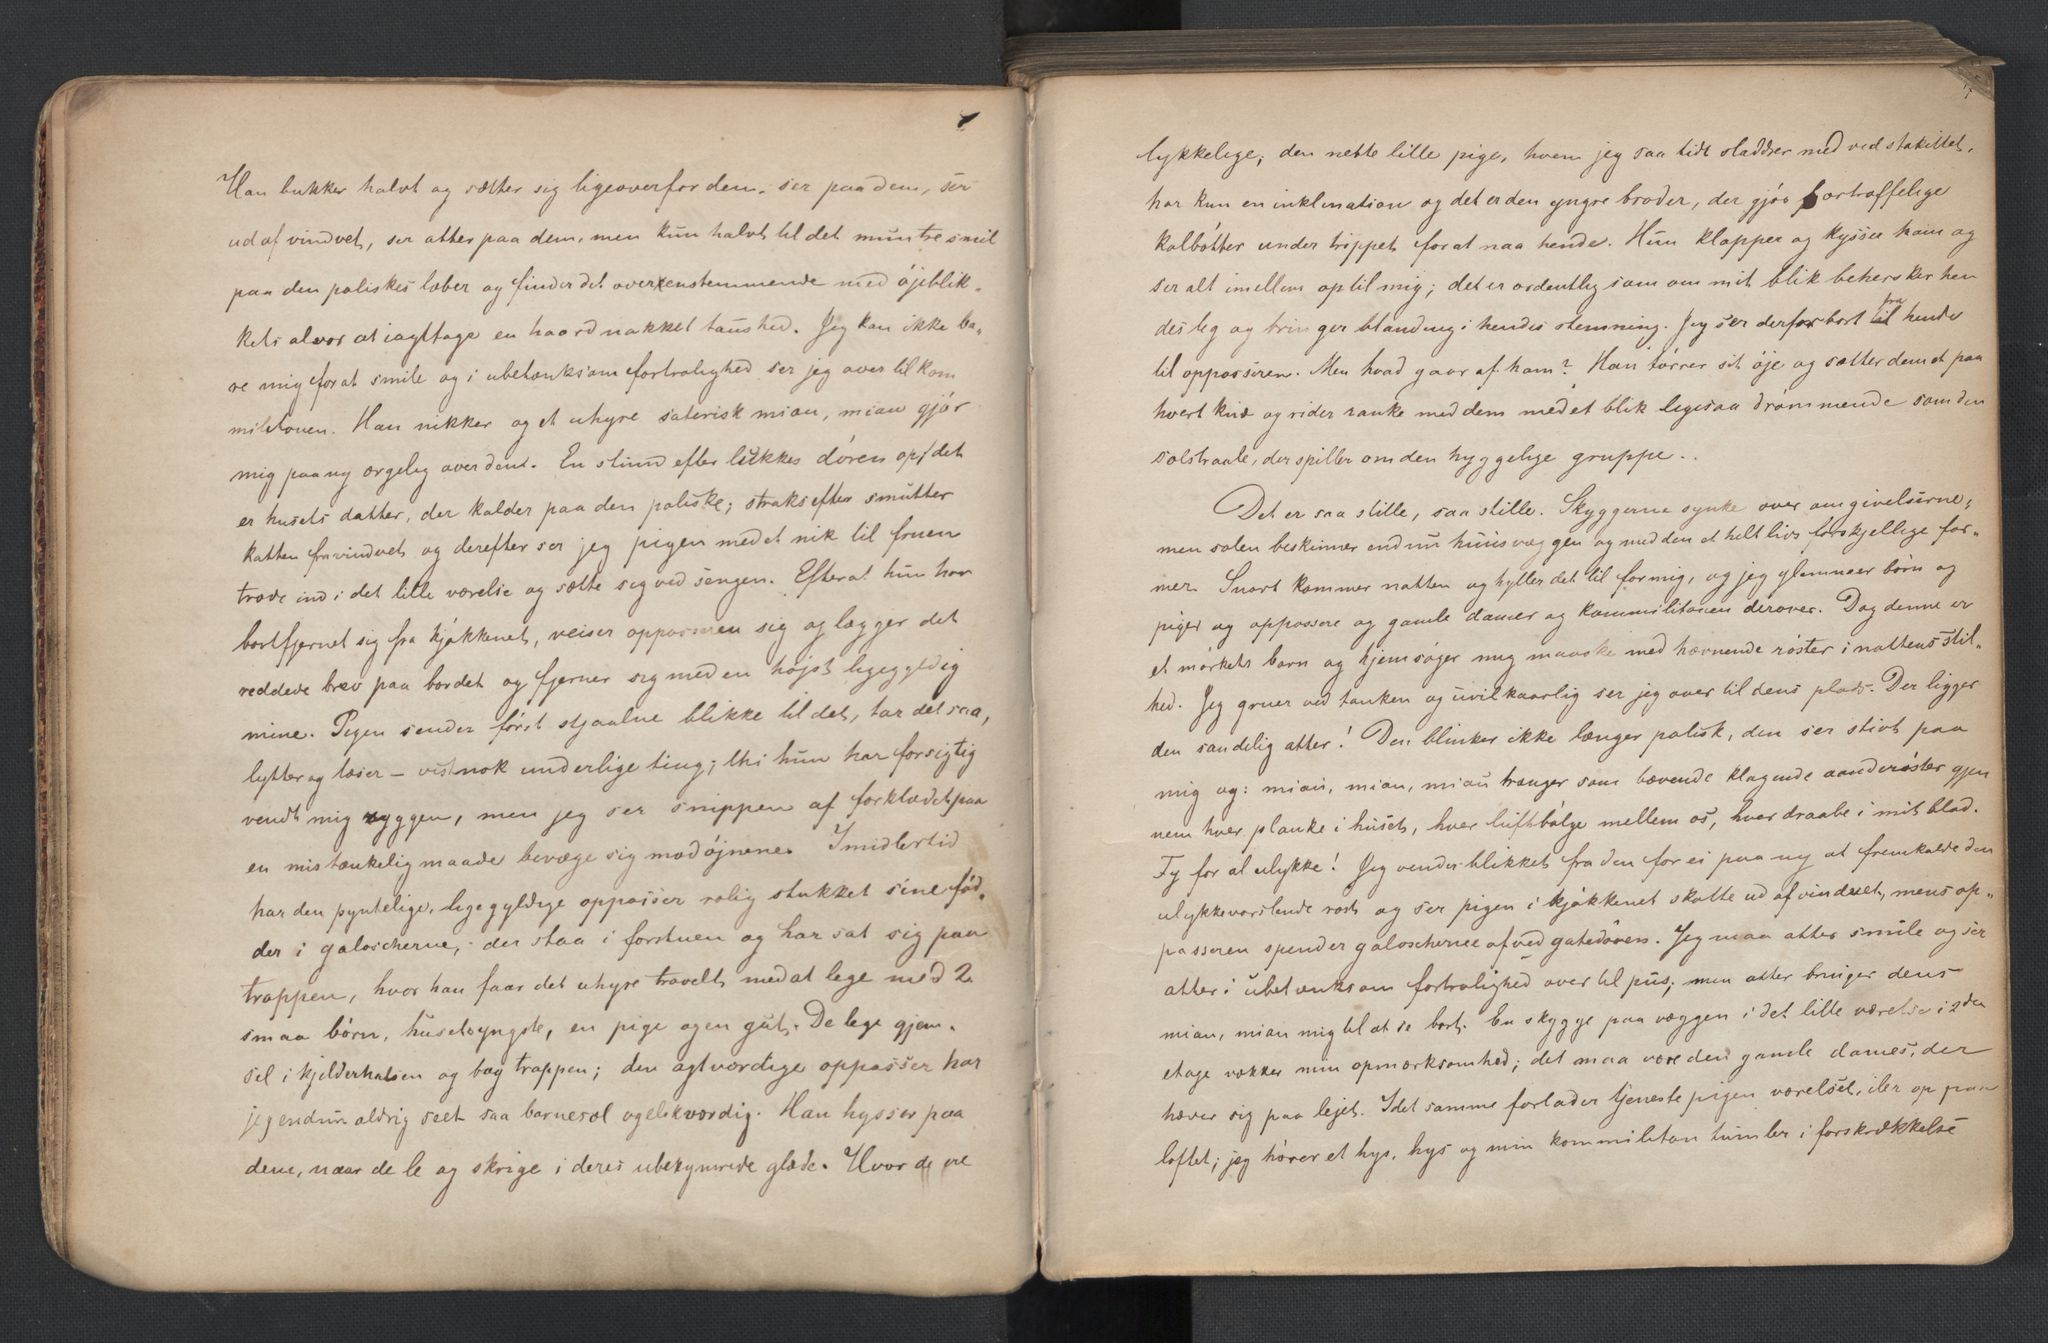 Han bukker halvt og sætter sig ligeoverfor dem, ser paa dem, ser
ud af vinduet, ser atter paa dem, men kun halvt til det muntre smil
paa den poliskes læber og finder det overenstemmende med öjeblik-
kets alvor at iagttage en haardnakket taushed. Jeg kan ikke ba-
re mig for at smile og i ubetænksom fortrolighed ser jeg over til kom
militonen. Han nikker og et uhyre saterisk miau, miau gjör
mig paany ærgelig over dem. En stund efter lukkes dören op, det
er husets datter, der kalder paa den poliske; straks efter smutter
katten fra vinduet og derefter ser jeg pigen med et nik til fruen
træde ind i det lille værelse og sætte sig ved sengen. Efterat hun har
bortfjernet sig fra kjökkenet, reiser oppasseren sig og lægger det
reddede brev paa bordet og fjerner sig med en höjst ligegyldig
mine. Pigen sender först stjaalne blikke til det, tar det saa,
lytter og læser – vistnok underlige ting; thi hun har forsigtig
vendt mig ryggen, men jeg ser snippen af forklædet paa
en mistænkelig maade bevæge sig mod öjnene. Imidlertid
har den pyntelige, ligegyldige oppasser rolig stukket sine föd-
der i galoscherne, der staa i forstuen og har sat sig paa
trappen, hvor han faar det uhyre travelt med at lege med 2
smaa börn, husets yngste, en pige og en gut. De lege gjem-
sel i kjelderhalsen og bag trappen; den agtværdige oppasser har
jeg endnu aldrig seet saa barnesæl og elskværdig. Han hysser paa
dem, naar de le og skrige i deres ubekymrede glæde. Hvor de ere
lykkelige; den nette lille pige, hvem jeg saa tidt sladdrer med ved stakittet,
har kun en inklination og det er den yngre broder, der gjör fortræffelige
kolbötter under trippet for at naa hende. Hun klapper og kysser ham og
ser alt imellem op til mig; det er ordentlig som om mit blik behersker hen
des leg og bringer blanding i hendes stemning. Jeg ser derfor bort fra hende
til oppasseren. Men hvad gaar af ham? Han törrer sit öje og sætter dem et paa
hvert knæ og rider ranke med dem med et blik ligesaa drömmende som den
solstraale, der spiller om den hyggelige gruppe..
Det er saa stille, saa stille. Skyggerne synke over omgivelserne,
men solen beskinner endnu huusvæggen og med den et helt livs forskjellige for-
mer. Snart kommer natten og hyller det til for mig, og jeg glemmer börn og
piger og oppassere og gamle damer og kommilitonen derover. Dog denne er
et mörkets barn og hjemsöger mig maaske med hævnende röster i nattens stil-
hed. Jeg gruer ved tanken og uvilkaarlig ser jeg over til dens plads. Der ligger
den sandelig atter! Den blinker ikke længer polisk, den ser stivt paa
mig og: miau, miau, miau trænger som bævende klagende aanderöster gjen
nem hver planke i huset, hver luftbölge mellem os, hver draabe i mit blod.
Fy for al ulykke! Jeg vender blikket fra den for ei paany at fremkalde den
ulykkevarslende röst og ser pigen i kjökkenet skotte ud af vinduet, mens op-
passeren spender galoscherne af ved gatedören. Jeg maa atter smile og ser
atter i ubetænksom fortrolighed over til pus, men atter bringer dens
miau, miau mig til at se bort. En skygge paa væggen i det lille værelse i 2den
etage vækker min opmærksomhed; det maa være den gamle dames, der
hæver sig paa lejet. I det samme forlader tjenestepigen værelset, iler op paa
loftet; jeg hörer et hys, hys og min kommiliton tumler i forskrækkelse